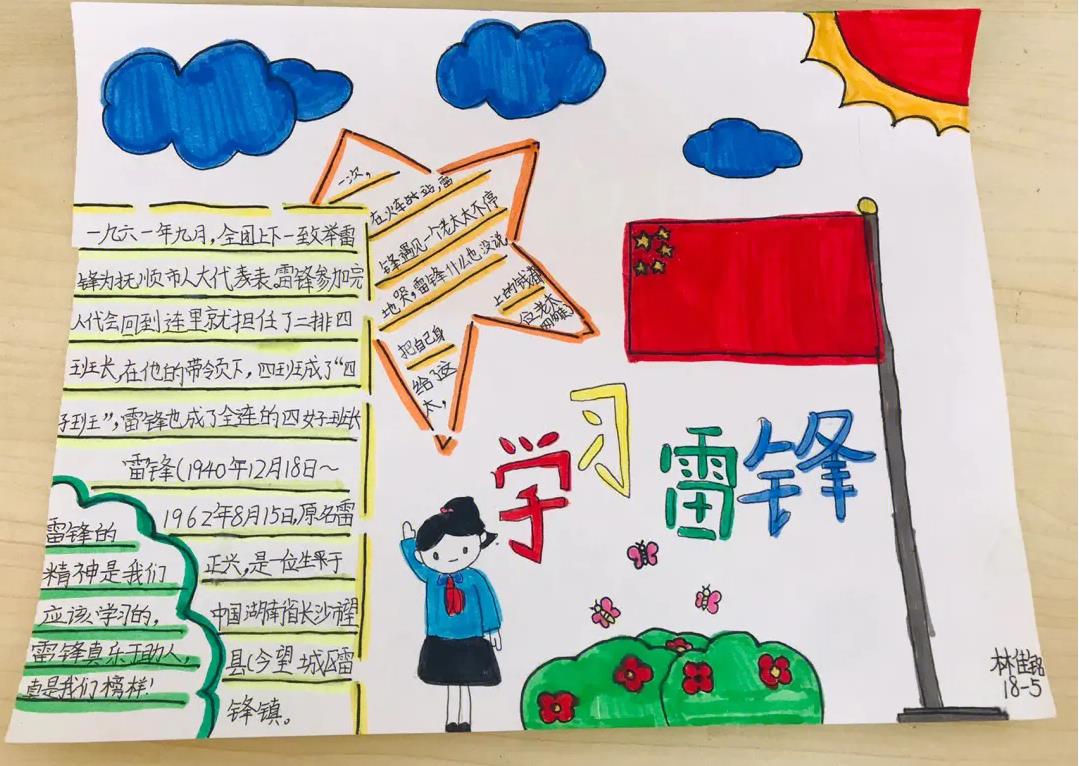 一九六一年九月,全团上下一致举雷
锋为抚顺市人大代表表。雷锋参加完
人代会回到连里就担任了二排四
班长,在他的带领下,四班成了“四
好班”,雷锋也成了全连的四好班长
雷锋(1940年12月18日~
1962年8月15日,原名雷
正兴,是一位生于
中国湖南省长沙市望
县(今望城区雷
锋镇。
雷锋的
精神是我们
应该学习的,
雷锋真乐于助人,
真是我们榜样!
一次,
在火车站,雷
锋遇见一个老太太不停
地哭,雷锋什么也没说
把自己身
上的钱都
给了这
位老太
太,
学习雷锋
林佳
18-5